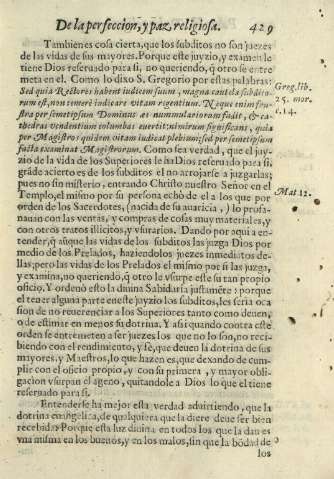 De la perfeccion, y paz religiosa. 429
Tambien es cosa cierta, que los subditos no son juezes
de las vidas de sus mayores. Porque este juyzio, y examen le
tiene Dios reservado para si, no queriendo, q̃ otro se entre
meta en el. Como lo dixo S. Gregorio por estas palabras:
Sed quia Rectores habent iudicem suum, magna cautela subdito-
rum est, non temerè iudicare vitam regentium. Neque enim fru-
stra per semetipsum Dominus æs nummulariorum fudit, & ca-
thedras vendentium columbas evertit: nimirum significans, quia
per Magistros quidem vitam iudicat plebium: sed per semetipsum
facta examinat Magistrorum. Como sea verdad, que el juy-
zio de la vida de los Superiores le ha Dios reservado para si,
grãde acierto es de los subditos el no arrojarse a juzgarlas;
pues no sin misterio, entrando Christo nuestro Señor en el
Templo, el mismo por su persona echò de el a los que por
orden de los Sacerdotes, (nacida de su avaricia,) lo profa-
navan con las ventas, y compras de cosas muy materiales, y
con otros tratos illicitos, y usurarios. Dando por aqui a en-
tender, q̃ aũque las vidas de los subditos las juzga Dios por
medio de los Prelados, haziendolos juezes inmediatos de-
llas; pero las vidas de los Prelados el mismo por si las juzga,
y examina, no queriendo, q̃ otro le vsurpe este su tan propio
oficio. Y ordenò esto la divina Sabiduria justamẽte: porque
el tener alguna parte en este juyzio los subditos, les seria oca
sion de no reverenciar a los Superiores tanto como deuen,
o de estimar en menos su dotrina. Y asi quando contra este
orden se entremeten a ser juezes los que no lo son, no reci-
biendo con el rendimiento, y fè, que deuen la dotrina de sus
mayores, y Maestros, lo que hazen es, que dexando de cum-
plir con el oficio propio, y con su primera, y mayor obli-
gacion vsurpan el ageno, quitandole a Dios lo que el tiene
reservado para si.
Entenderse ha mejor esta verdad advirtiendo, que la
dotrina evangelica, de qualquiera que la diere deue ser bien
recebida: Porque esta luz divina en todos los que la dan es
vna misma en los buenos, y en los malos, sin que la bõdad de
los
Greg. lib.
25. mor.
c. 14.
Mat. 12.